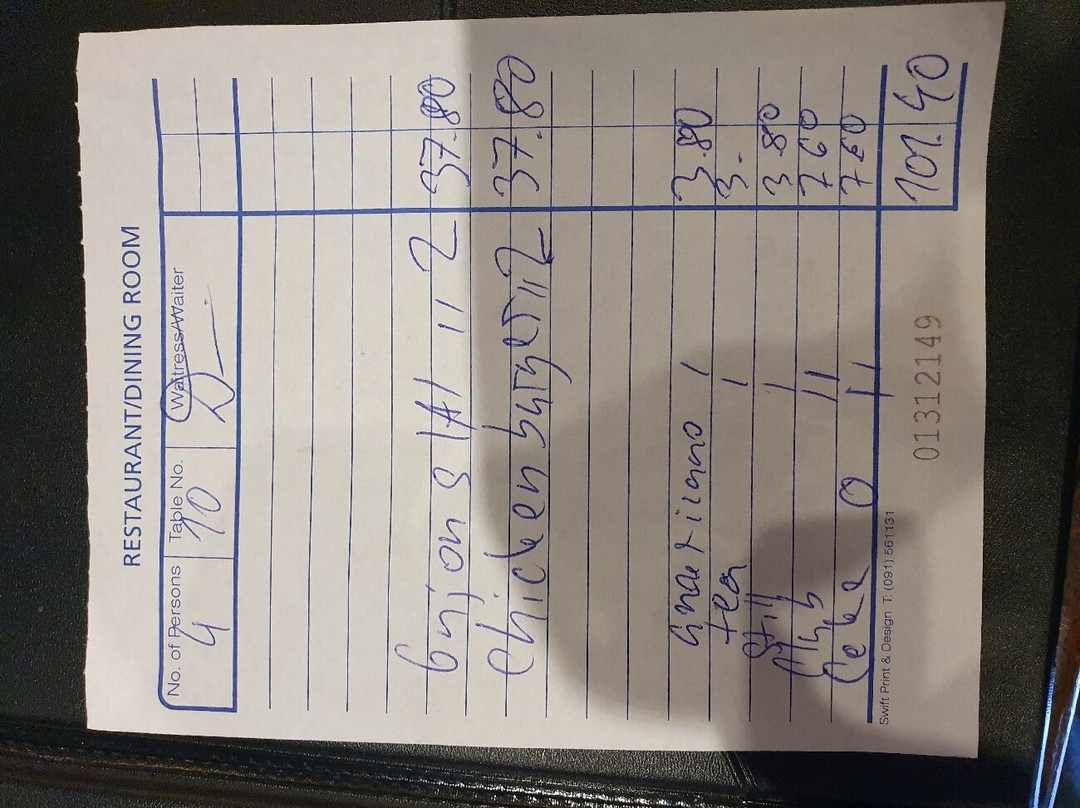 RESTAURANT/DINING ROOM
No. of Persons Table No. Waitress/Waiter
4 10
Gujons 11 2 37.80
Chicken burger 11 2 37.80
Amaricano 1 3.80
tea 1 3.-
Still 1 3.80
Club 11 7 60
Coke 0 11 7.60
101.40
Swift Print & Design T: (091) 561131
01312149